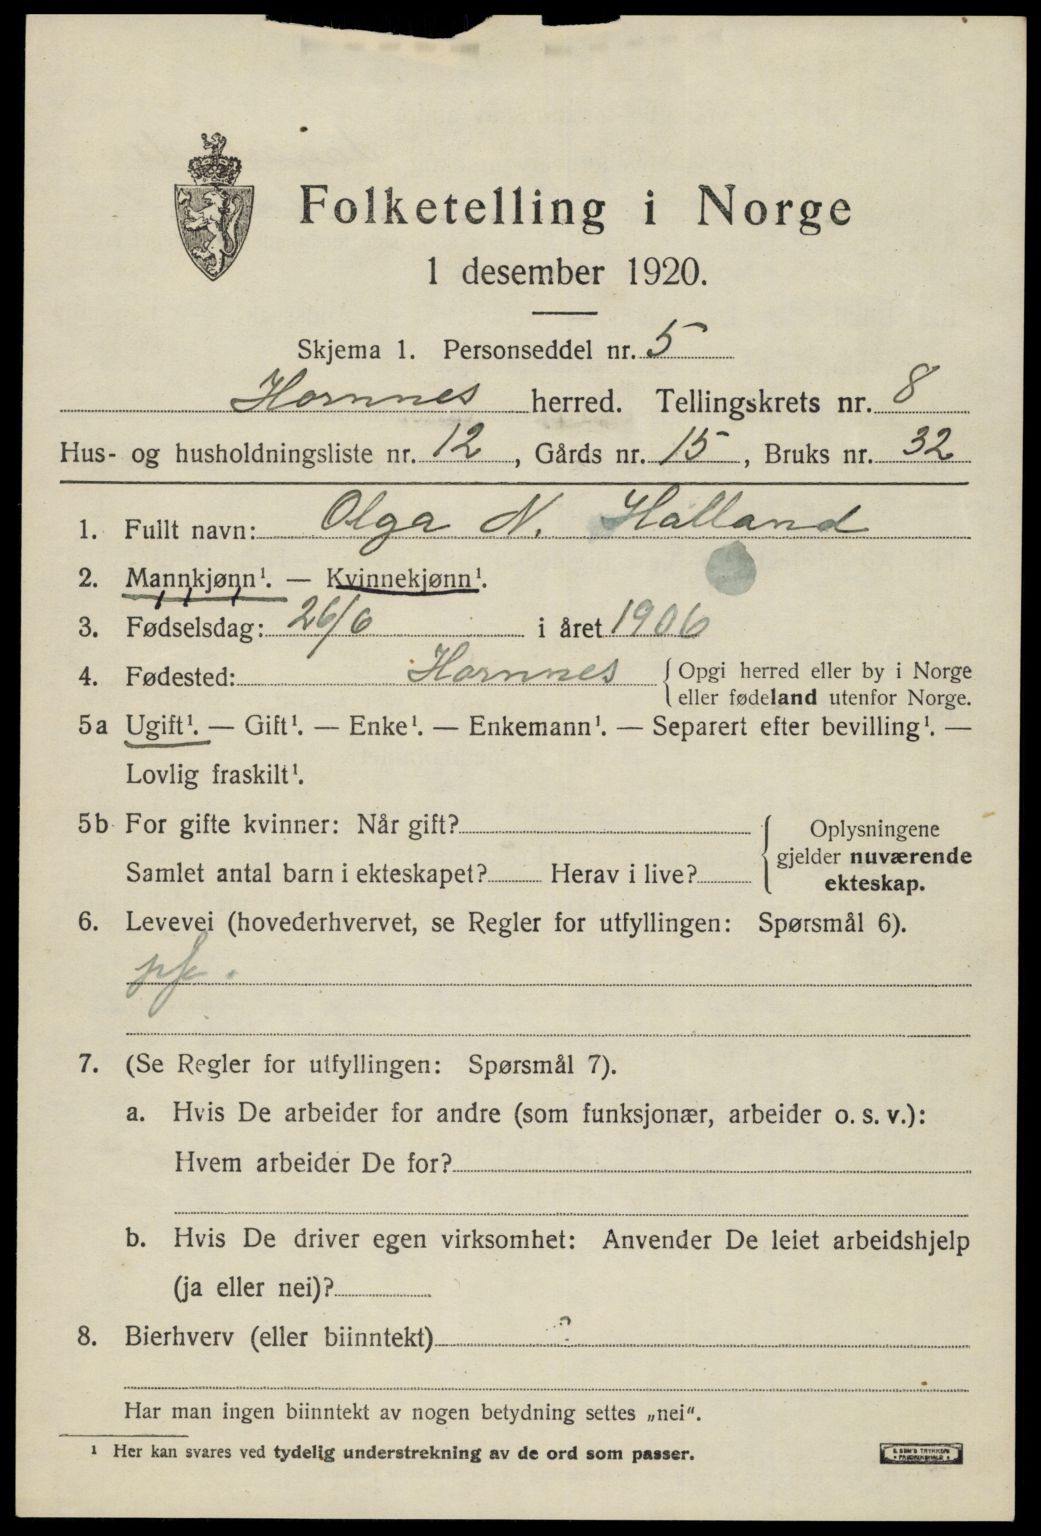 Folketelling i Norge
1 desember 1920.
Skjema 1. Personseddel nr. 5
Hornnes herred. Tellingskrets nr. 8
Hus- og husholdningsliste nr. 12, Gårds nr. 15, Bruks nr. 32
1. Fullt navn: Olga N. Halland
2. Mannkjønn¹. — Kvinnekjønn¹.
3. Fødselsdag: 26/6 i året 1906
4. Fødested: Hornnes { Opgi herred eller by i Norge
eller fødeland utenfor Norge.
5a Ugift¹. — Gift¹. — Enke¹. — Enkemann¹. — Separert efter bevilling¹. —
Lovlig fraskilt¹.
5b For gifte kvinner: Når gift?
Samlet antal barn i ekteskapet? Herav i live?
Oplysningene
gjelder nuværende
ekteskap.
6. Levevei (hovederhvervet, se Regler for utfyllingen: Spørsmål 6).
7. (Se Regler for utfyllingen: Spørsmål 7).
a. Hvis De arbeider for andre (som funksjonær, arbeider o. s. v.):
Hvem arbeider De for?
b. Hvis De driver egen virksomhet: Anvender De leiet arbeidshjelp
(ja eller nei)?
8. Bierhverv (eller biinntekt) ?
Har man ingen biinntekt av nogen betydning settes „nei".
¹ Her kan svares ved tydelig understrekning av de ord som passer.